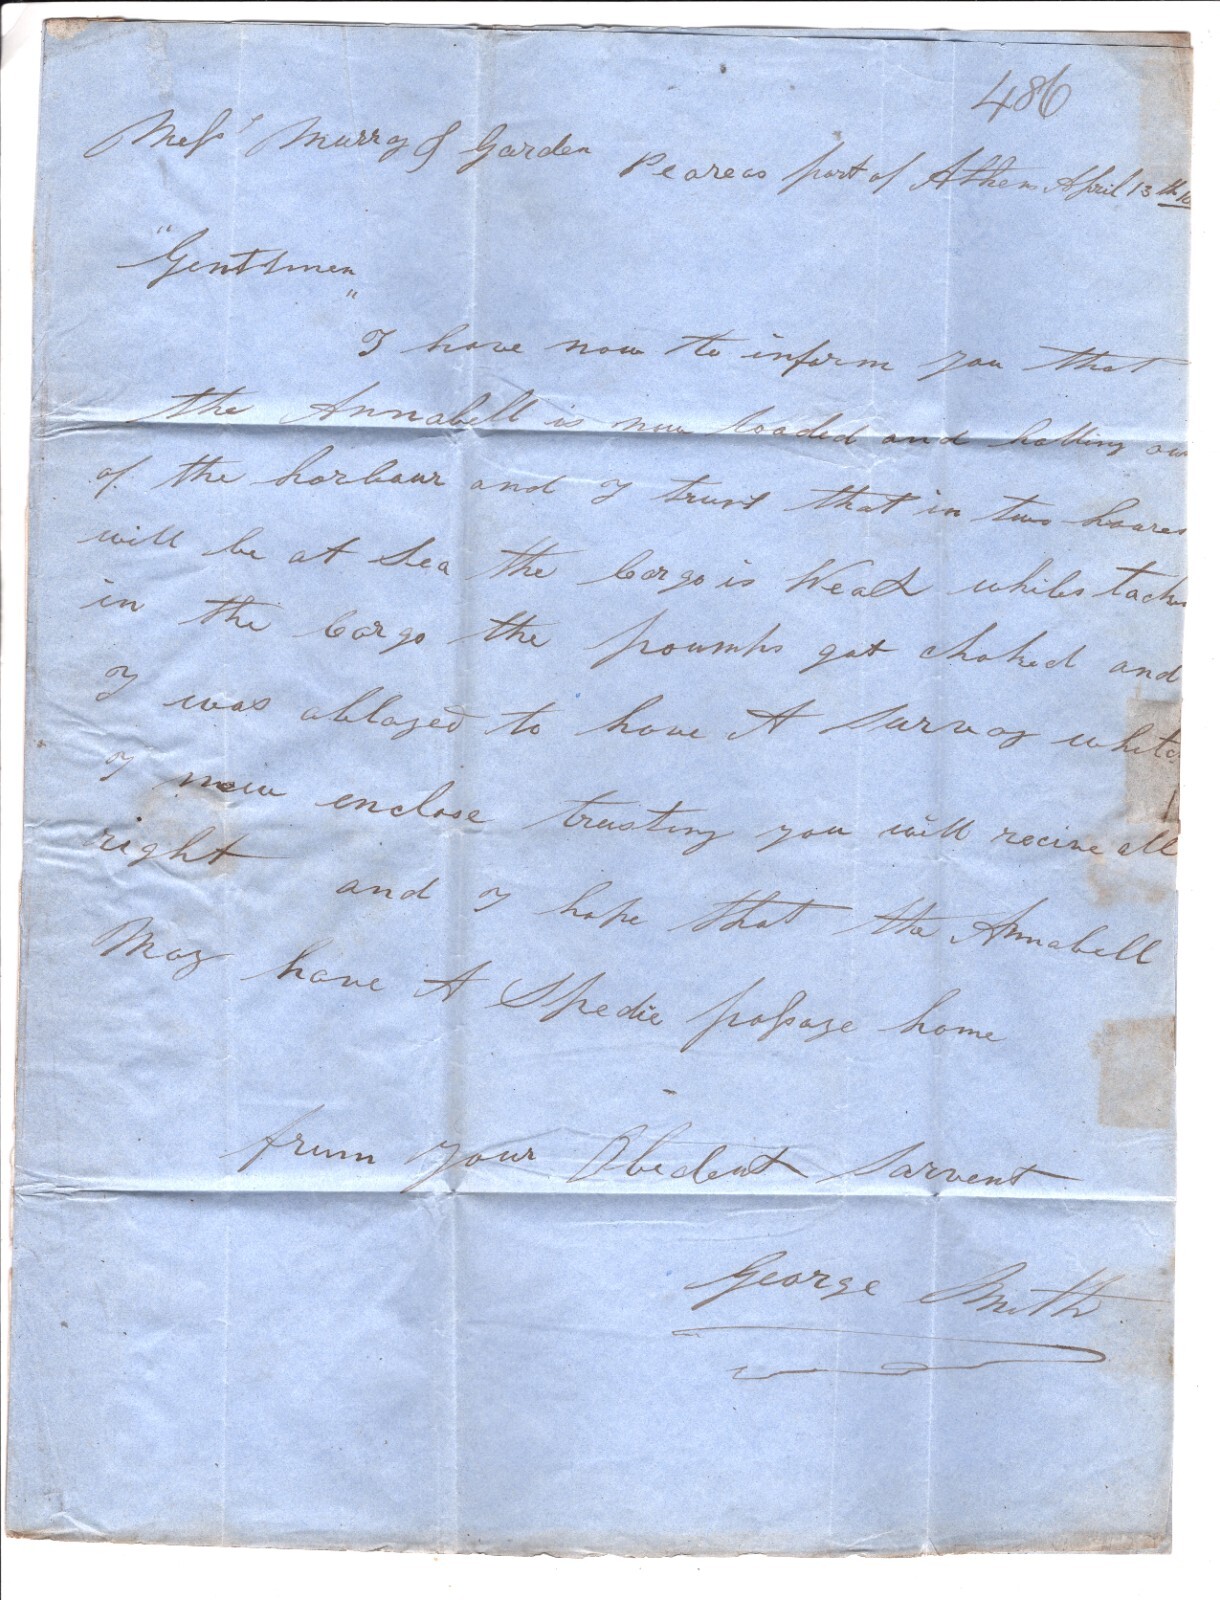 486
Messrs Murray & Garden Peareas port of Athens April 13th
"Gentlmen"
I have now to inform you that
the Annabell is now loaded and halling
of the harbour and I trust that in two hoares
will be at Sea the Cargo is Weat whiles
in the Cargo the poumps got choked and
I was ablaged to have A Survay
I now enclose trusting you will recive all
right and I hope that the Annabell
May have A Spedie passage home
frum your Obedent Sarvent
George Smith